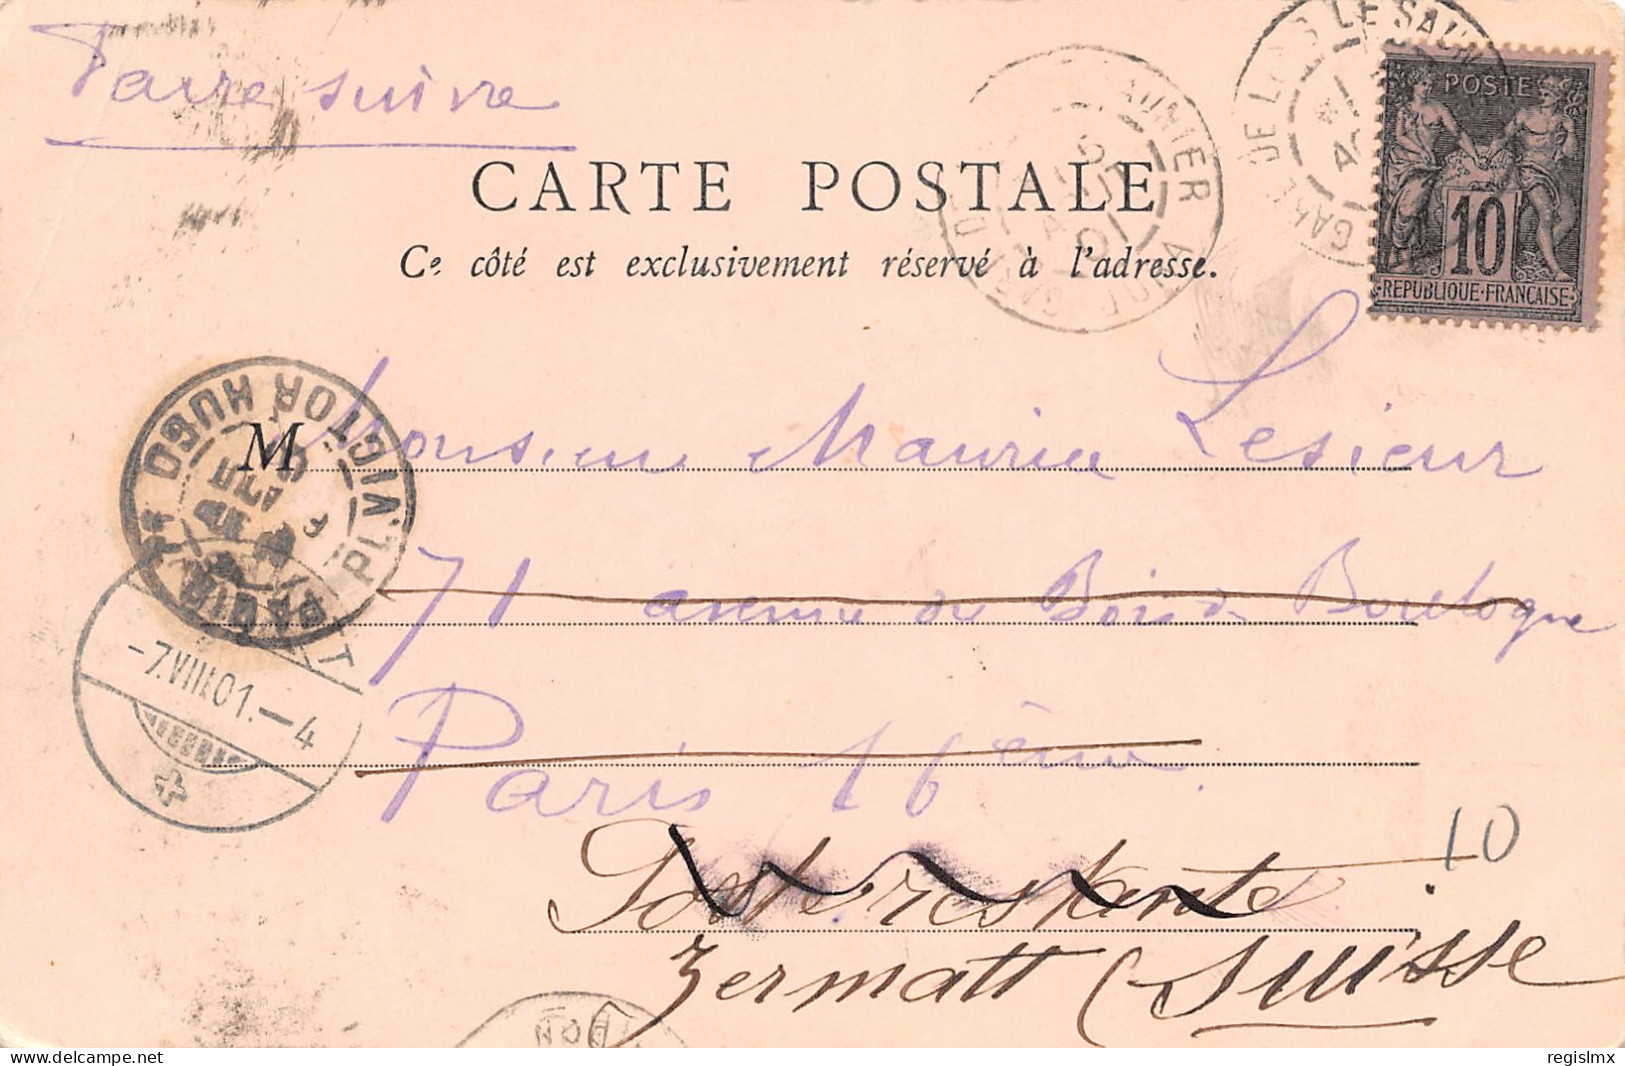 Faire suivre
CARTE POSTALE
Ce côté est exclusivement réservé à l'adresse.
LE SAUNIER
GARE DE LONS LE SAUNIER
POSTE
10
REPUBLIQUE FRANÇAISE
PARIS
PL. VICTOR HUGO
M
Monsieur Maurice Lesieur
71 avenue du Bois de Boulogne
Paris 16ème.
-7.VIII.01.-4
10
Poste restante
Zermatt (Suisse
regislmx